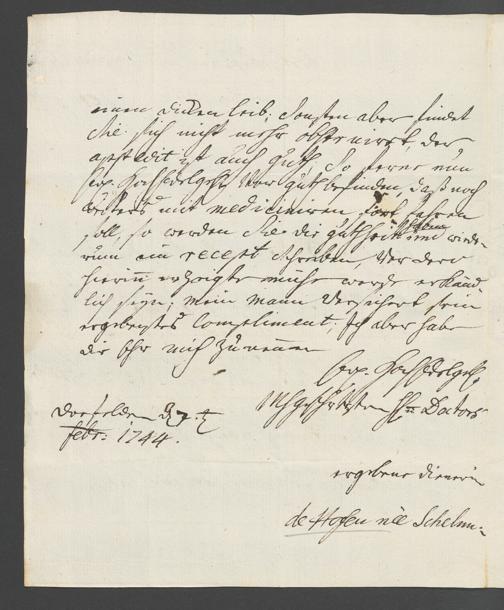 einen dicken leib; Sonsten aber findet
Sie sich nicht mehr obstruirt, der
apetedit ist auch guth, So ferne nun
Ew. HochEdelgeb. Vor guth befinden, daß noch
weiters mit mediciniren fort fahren
soll, so werden Sie die gütheit haben mir wiede-
rum ein recept schreiben, Vor dero
hierin erzeigte mühe werde erkänd-
lich seyn; mein mann Versichert sein
ergebenstes Compliment; Ich aber habe
die Ehr mich zu nennen
Ew. HochEdelgeb.
Insgeschätzten Hn Doctors
Dorfelden d. 7. t
febr: 1744.
ergebene dienerin
de Hofen née Schelm: